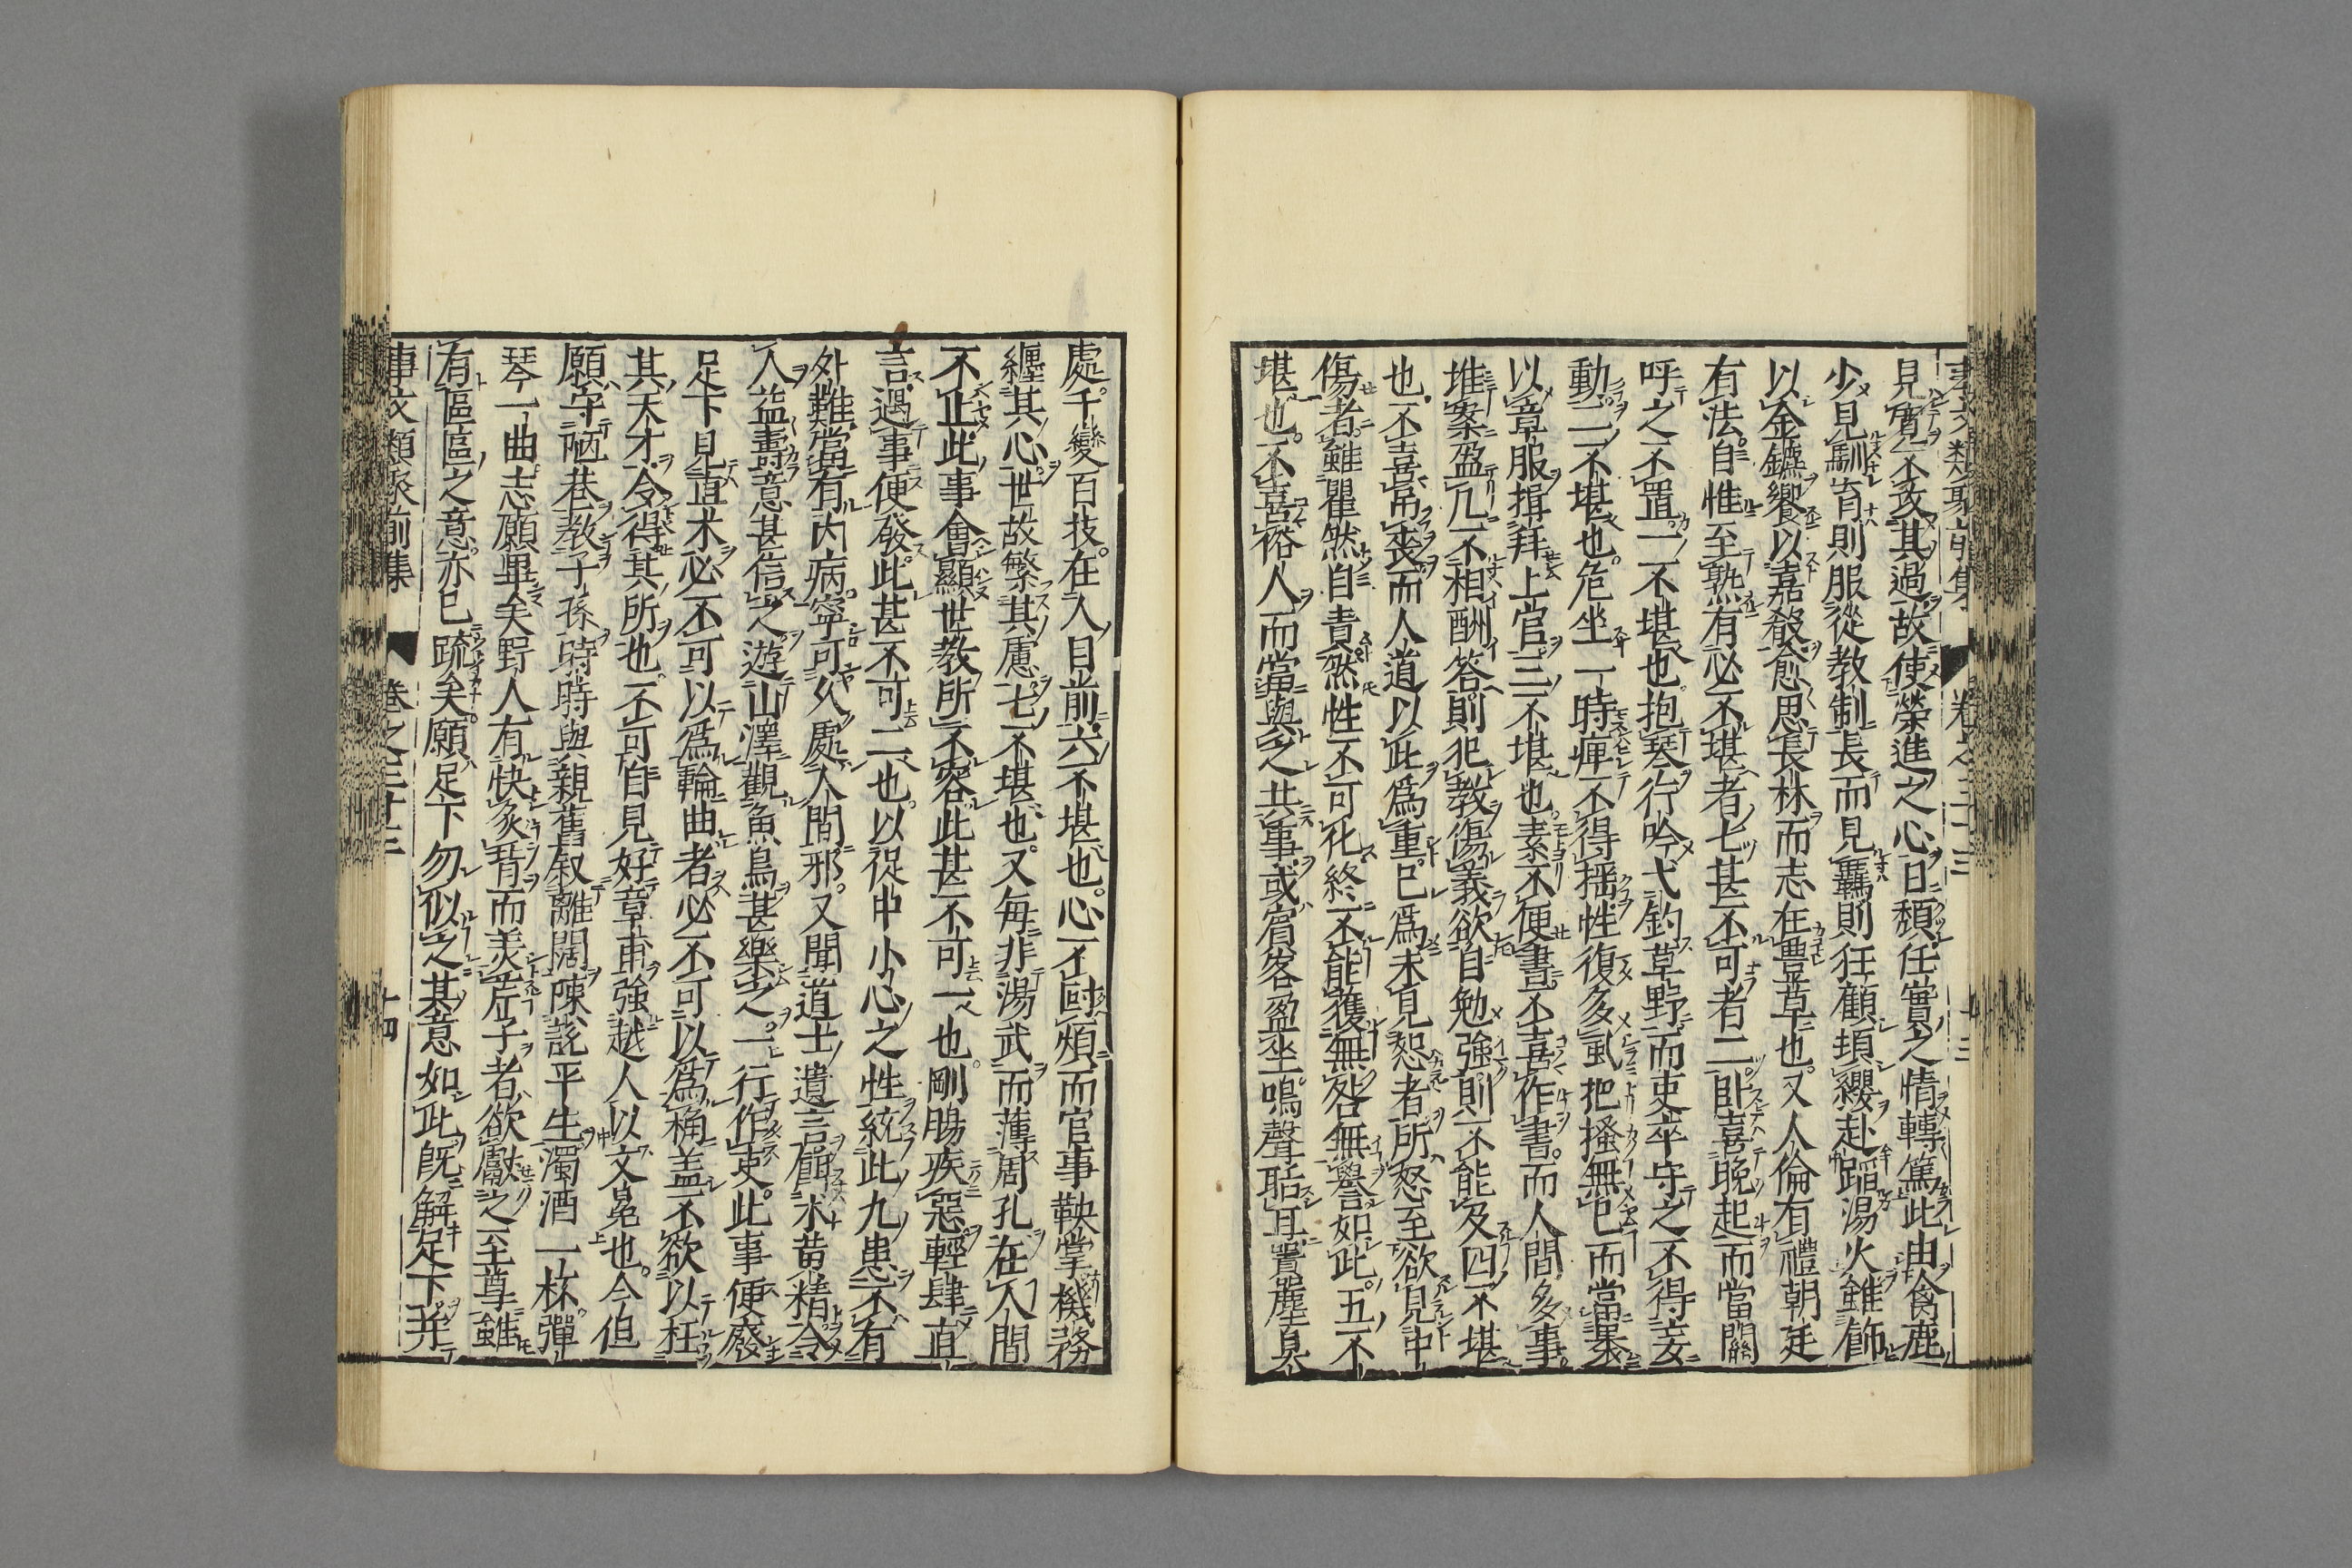 事文類聚前集 卷之三十三
見寬不攻其過故使榮進之心日頹任實之情轉篤此由禽鹿
少見馴育則服從教制長而見羈則狂顧頓纓赴蹈湯火雖飾
以金鑣饗以嘉殽愈思長林而志在豊草也又人倫有禮朝廷
有法自惟至熟有必不堪者七甚不可者二卧喜晚起而當關
呼之不置一不堪也抱琴行吟弋釣草野而吏卒守之不得妄
動二不堪也危坐一時痺不得揺性復多虱把搔無已而當裹
以章服揖拜上官三不堪也素不便書不喜作書而人間多事
堆案盈几不相酬答則犯教傷義欲自勉強則不能久四不堪
也不喜吊喪而人道以此爲重已爲未見恕者所怒至欲見中
傷者雖瞿然自責然性不可化終不能獲無咎無譽如此五不
堪也不喜裕人而當與之共事或賓客盈坐鳴聲聒耳囂塵臭
處千變百技在人目前六不堪也心不耐煩而官事鞅掌機務
纏其心世故繁其慮七不堪也又每非湯武而薄周孔在人間
不止此事會顯世教所不容此甚不可一也剛腸疾惡輕肆直
言遇事便發此甚不可二也以促中小心之性統此九患不有
外難當有内病寧可久處人間邪又聞道士遺言餌术黄精令
人益壽意甚信之遊山澤觀魚鳥甚樂之一行作吏此事便廢
足下見直木必不可以爲輪曲者必不可以爲桷盖不欲以枉
其天才令得其所也不可自見好章甫強越人以文冕也今但
願守陋巷教子孫時時與親舊叙離闊陳説平生濁酒一杯彈
琴一曲志願畢矣野人有快炙背而美芹子者欲獻之至尊雖
有區區之意亦已疏矣願足下勿似之其意如此既解足下并
事文類聚前集 卷之三十三 十四